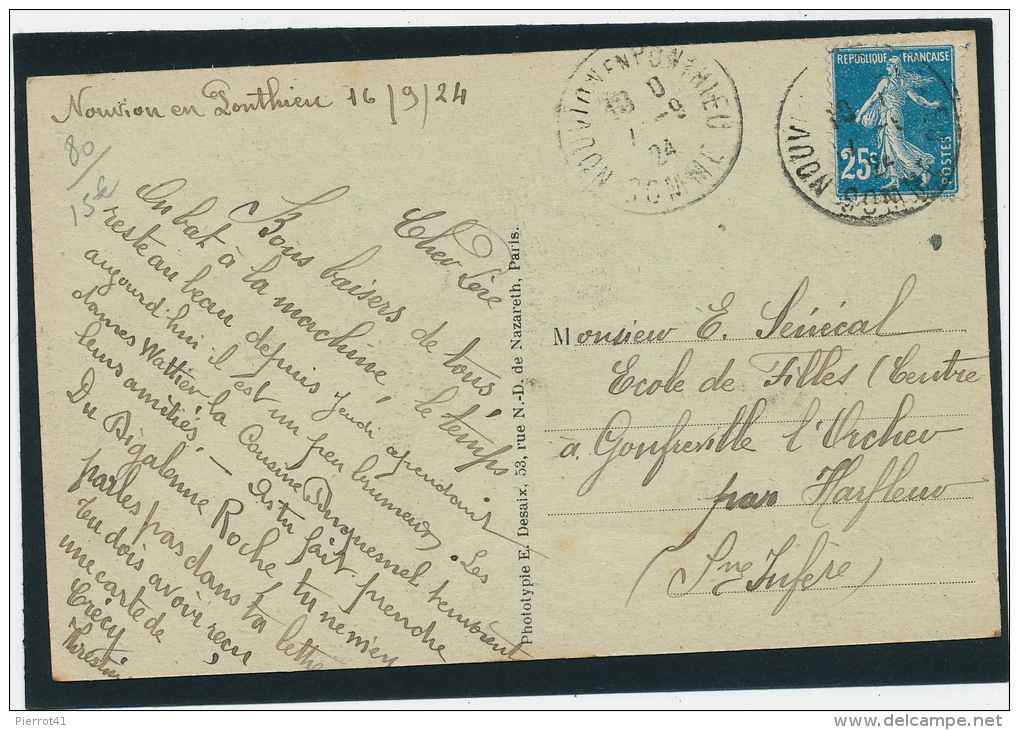 Nouvion en Ponthieu 16/9/24
80/
15e
Cher Père
Bons baisers de tous,
On bat à la machine, le temps
reste au beau depuis jeudi
aujourd'hui il est un peu brumeux. Les
dames Wattier la Cousine Duquesnel t'envoient
leurs amitiés. — As tu fait prendre
Du Bigalenne Roche, tu ne m'en
parles pas dans ta lettre
tu dois avoir reçu
une carte de
Crécy
NOUVION EN PONTHIEU
24
SOMME
REPUBLIQUE FRANÇAISE
25c
POSTES
NOUVI
SOMME
Phototypie E. Desaix, 53, rue N.-D. de Nazareth, Paris.
Monsieur E. Sénécal
Ecole de Filles (Centre
à Gonfreville l'Orcher
par Harfleur
(Sne Infère)
Pierrot41
www.delcampe.net